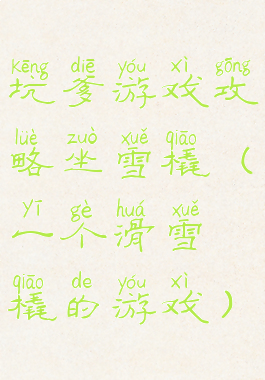 kēng diē yóu xì gōng
坑爹游戏攻
lüè zuò xuě qiāo
略坐雪橇（
yī gè huá xuě
一个滑雪
qiāo de yóu xì
橇的游戏）